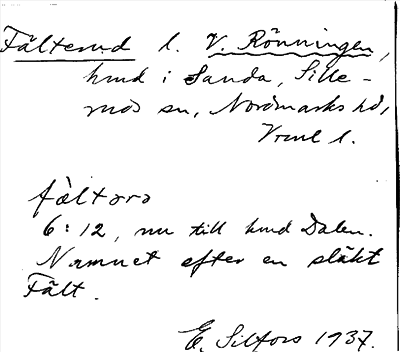 Fälterud l. V. Rönningen,
hmd i Sanda, Sille-
muds sn, Nordmarks hd,
Vrml l.
fäl̀tərə
6:12, nu till hmd Dalen.
Namnet efter en släkt
Fält.
E. Silfors 1937.